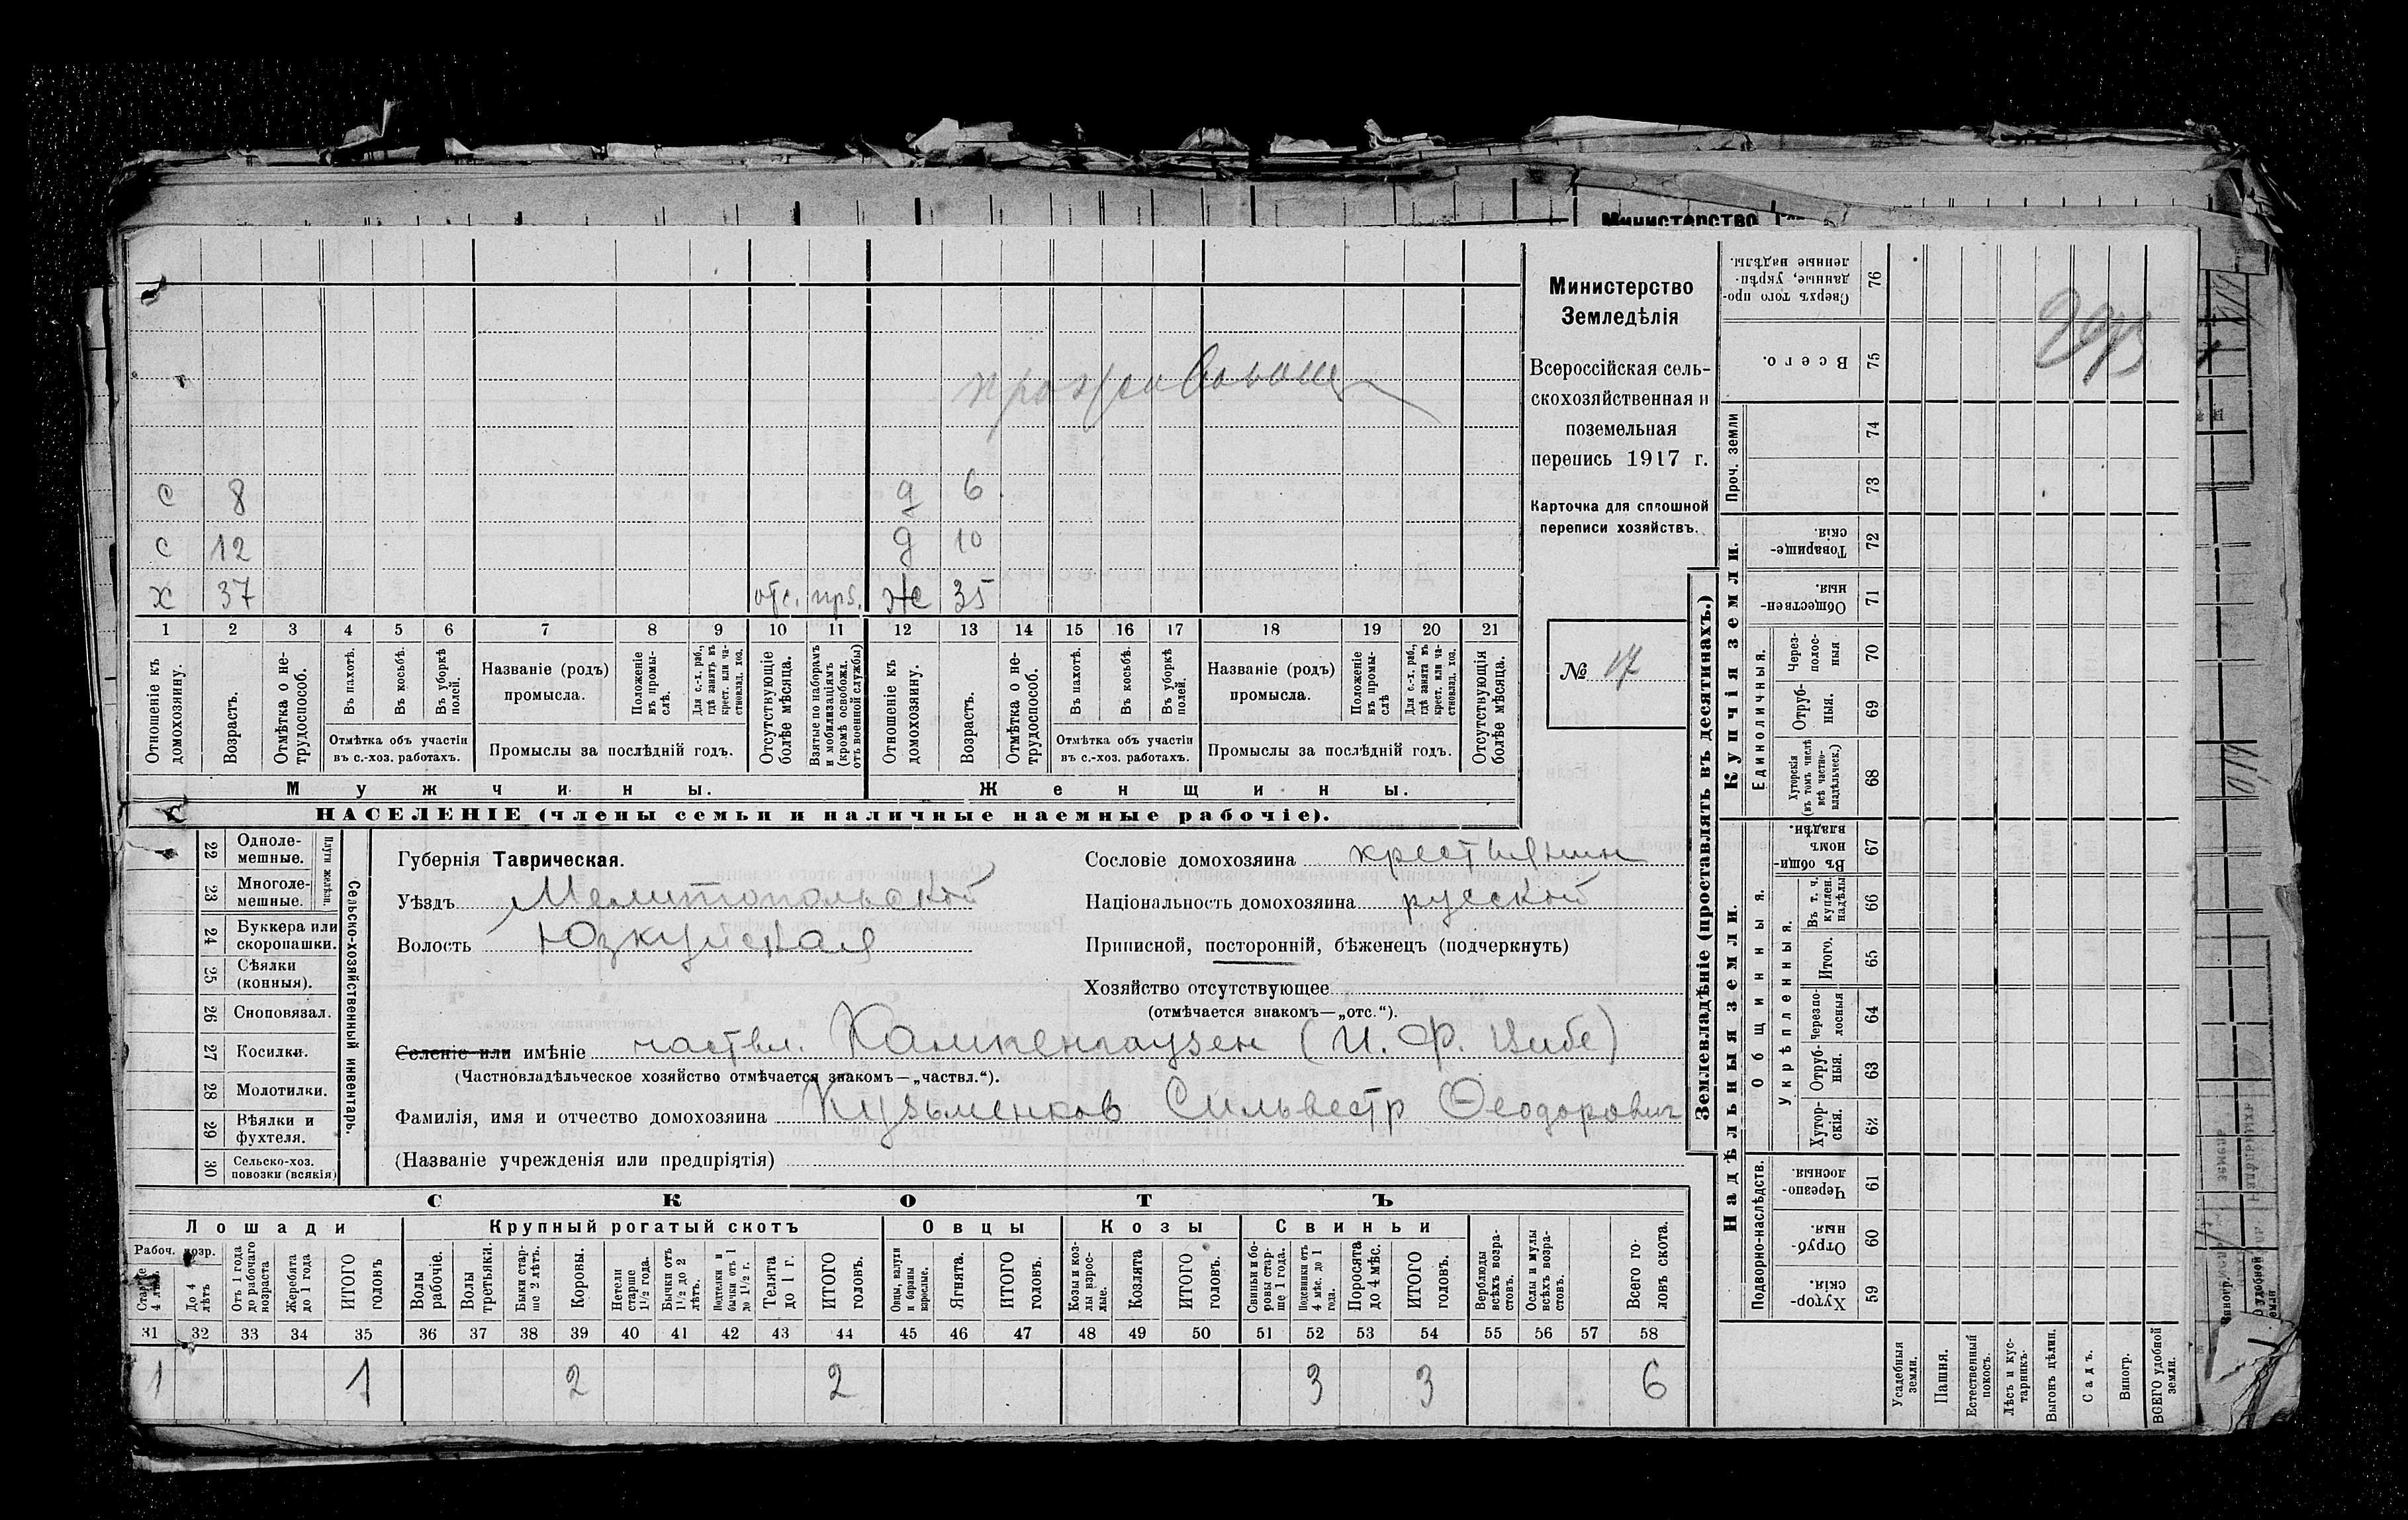 Министерство
проживающ
с 8 д 6
с 12 д 10
х 37 отс. прз. ж 35
1 2 3 4 5 6 7 8 9 10 11 12 13 14 15 16 17 18 19 20 21
Отношеніе къ домохозяину.
Возрастъ.
Отмѣтка о не-трудоспособ.
Въ пахотѣ.
Въ косьбѣ.
Въ уборкѣ полей.
Отмѣтка объ участіи въ с.-хоз. работахъ.
Названіе (родъ) промысла.
Положеніе въ промы-слѣ.
Для с.-х. раб., гдѣ занятъ въ крест. или ча-стновлад. хоз.
Промыслы за послѣдній годъ.
Отсутствующіе болѣе мѣсяца.
Взятые по наборамъ и мобилизаціямъ (кромѣ освобожд. отъ военной службы)
Отношеніе къ домохозяину.
Возрастъ.
Отмѣтка о не-трудоспособ.
Въ пахотѣ.
Въ косьбѣ.
Въ уборкѣ полей.
Отмѣтка объ участіи въ с.-хоз. работахъ.
Названіе (родъ) промысла.
Положеніе въ промы-слѣ
Для с.-х. раб., гдѣ занята въ крест. или ча-стновлад. хоз.
Промыслы за послѣдній годъ.
Отсутствующія болѣе мѣсяца.
Мужчины.
Женщины.
НАСЕЛЕНІЕ (члены семьи и наличные наемные рабочіе).
Министерство
Земледѣлія
Всероссійская сель-
скохозяйственная и
поземельная
перепись 1917 г.
Карточка для сплошной
переписи хозяйствъ.
№ 17
22 Одноле-мешные.
23 Многоле-мешные.
Плуги желѣзн.
24 Буккера или скоропашки.
25 Сѣялки (конныя).
26 Сноповязал.
27 Косилки.
28 Молотилки.
29 Вѣялки и фухтеля.
30 Сельско-хоз. повозки (всякія)
Сельско-хозяйственный инвентарь.
Губернія Таврическая.
Уѣздъ Мелитопольской
Волость Юзкуйская
Сословіе домохозяина крестьянин
Національность домохозяина русской
Приписной, посторонній, бѣженецъ (подчеркнуть)
Хозяйство отсутствующее
(отмѣчается знакомъ—„отс.“).
Селеніе или имѣніе частвл. Кампенгаузен (И. Ф. Вибе)
(Частновладѣльческое хозяйство отмѣчается знакомъ—„частвл.“).
Фамилія, имя и отчество домохозяина Кузьменков Сильвестр Ѳеодорович
(Названіе учрежденія или предпріятія)
СКОТЪ
Лошади Крупный рогатый скотъ Овцы Козы Свиньи
Рабоч. возр.
Старше 4 лѣтъ.
До 4 лѣтъ
Отъ 1 года до рабочаго возраста
Жеребята до 1 года
ИТОГО головъ
Волы рабочіе.
Волы третьяки.
Быки стар-ше 2 лѣтъ.
Коровы.
Нетели старше 1½ года.
Бычки отъ 1½ до 2 лѣтъ.
Подтелки и бычки отъ 1 до 1½ г.
Телята до 1 г.
ИТОГО головъ.
Овцы, валухи и бараны взрослые.
Ягнята.
ИТОГО головъ.
Козы и коз-лы взрос-лые.
Козлята
ИТОГО головъ.
Свиньи и бо-ровы стар-ше 1 года.
Подсвинки отъ 4 мѣс. до 1 года.
Поросята до 4 мѣс.
ИТОГО головъ.
Верблюды всѣхъ возра-стовъ.
Ослы и мулы всѣхъ возра-стовъ.
Всего го-ловъ скота.
31 32 33 34 35 36 37 38 39 40 41 42 43 44 45 46 47 48 49 50 51 52 53 54 55 56 57 58
1 1 2 2 3 3 6
Землевладѣніе (проставлять въ десятинахъ.)
Надѣльныя земли.
Купчія земли.
Проч. земли
Подворно-наслѣдств.
Общинныя.
Укрѣпленныя.
Единоличныя.
Сверхъ того про-данные, укрѣп-ленные надѣлы. 76
Всего. 75
74
73
Товарище-скія. 72
Обществен-ныя. 71
Через-полос-ныя 70
Отруб-ныя. 69
Хуторскія (въ томъ числѣ всѣ частно-владѣльческ.) 68
Въ общин-номъ владѣн. 67
Въ т. ч. куплен. надѣлы 66
Итого. 65
Черезпо-лосныя 64
Отруб-ныя. 63
Хутор-скія. 62
Черезпо-лосныя. 61
Отруб-ныя. 60
Хутор-скія. 59
Усадебныя земли.
Пашня.
Естественный покосъ.
Лѣсъ и кус-тарникъ.
Выгонъ цѣлин.
Садъ.
Виногр.
ВСЕГО удобной земли.